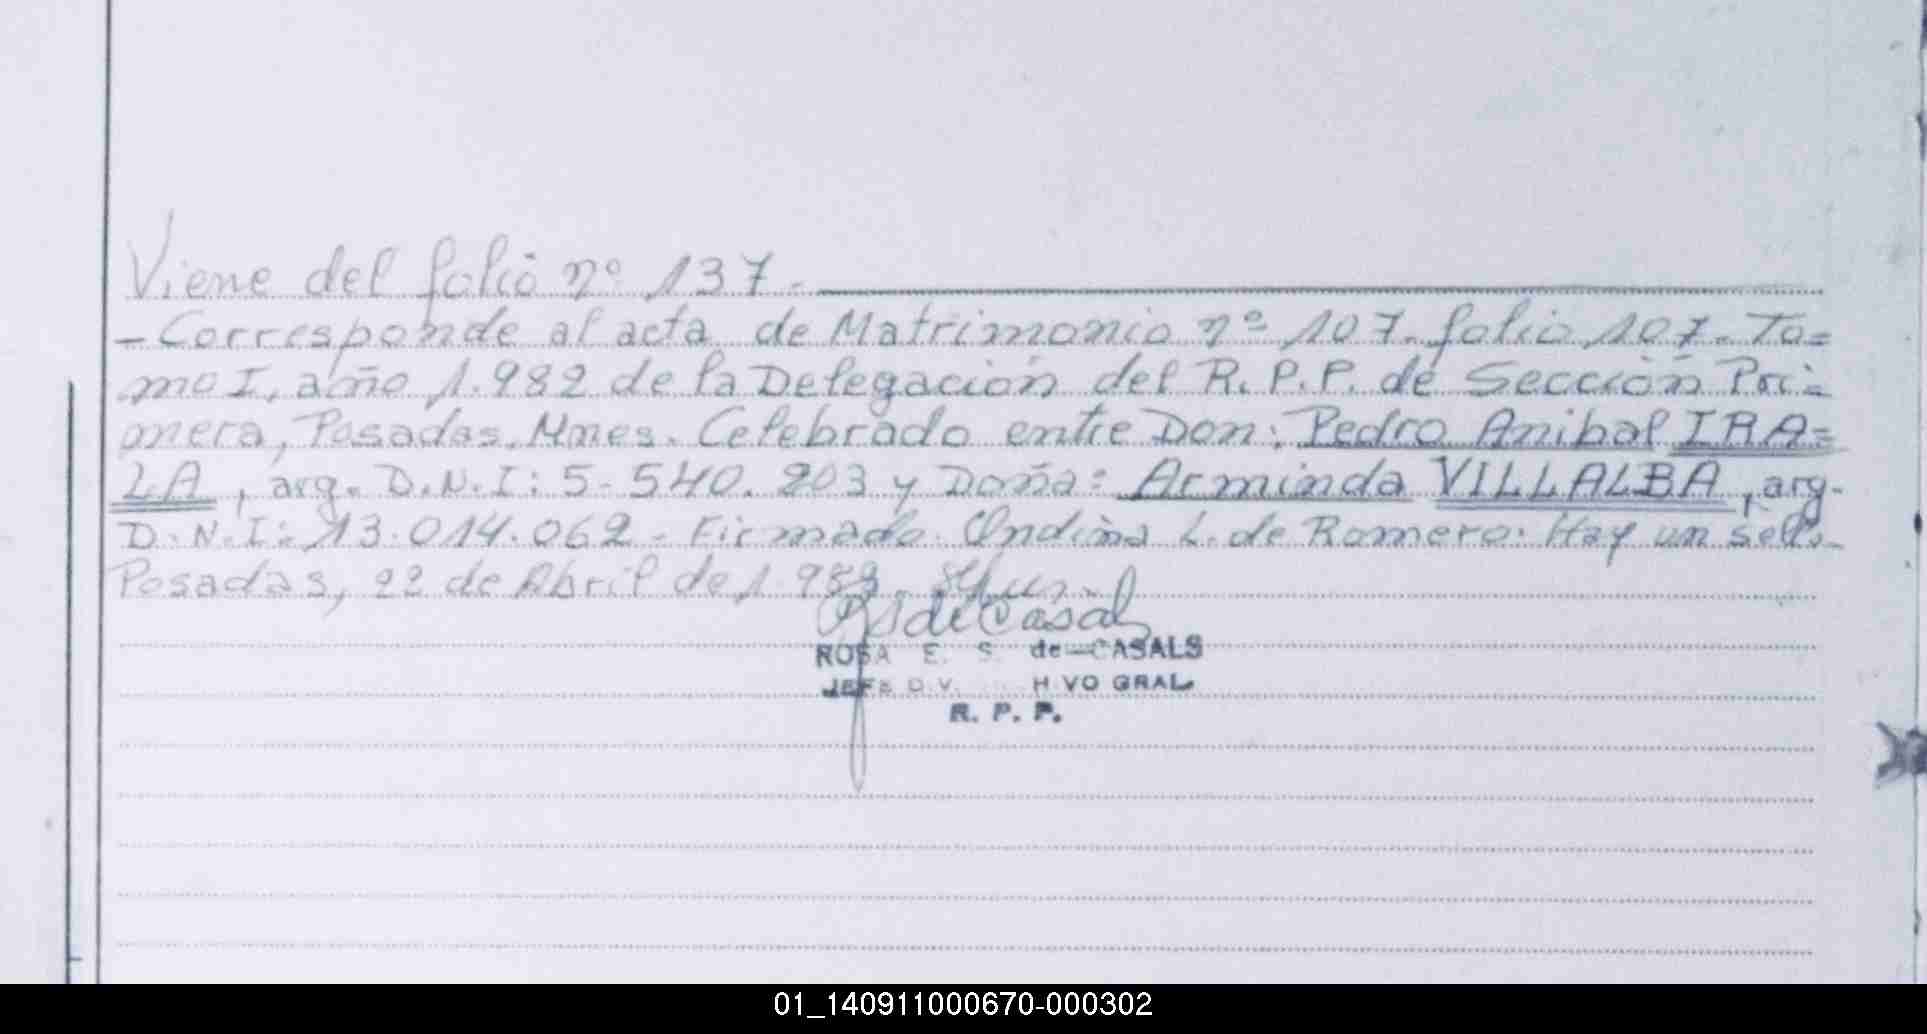 Viene del folio nº 137.-
- Corresponde al acta de Matrimonio nº 107. folio 107. To=
mo I, año 1.982 de la Delegación del R.P.P. de Sección Pri=
mera, Posadas, Mnes. Celebrado entre Don: Pedro Anibal IRA=
LA, arg. D.N.I: 5.540.203 y Doña: Arminda VILLALBA, arg.
D.N.I: 13.014.062. Firmado. L. de Romero. Hay un sello.-
Posadas, 22 de Abril de
de Casals
ROSA E. S. de CASALS
JEFE D V. H VO GRAL
R. P. P.
01_140911000670-000302